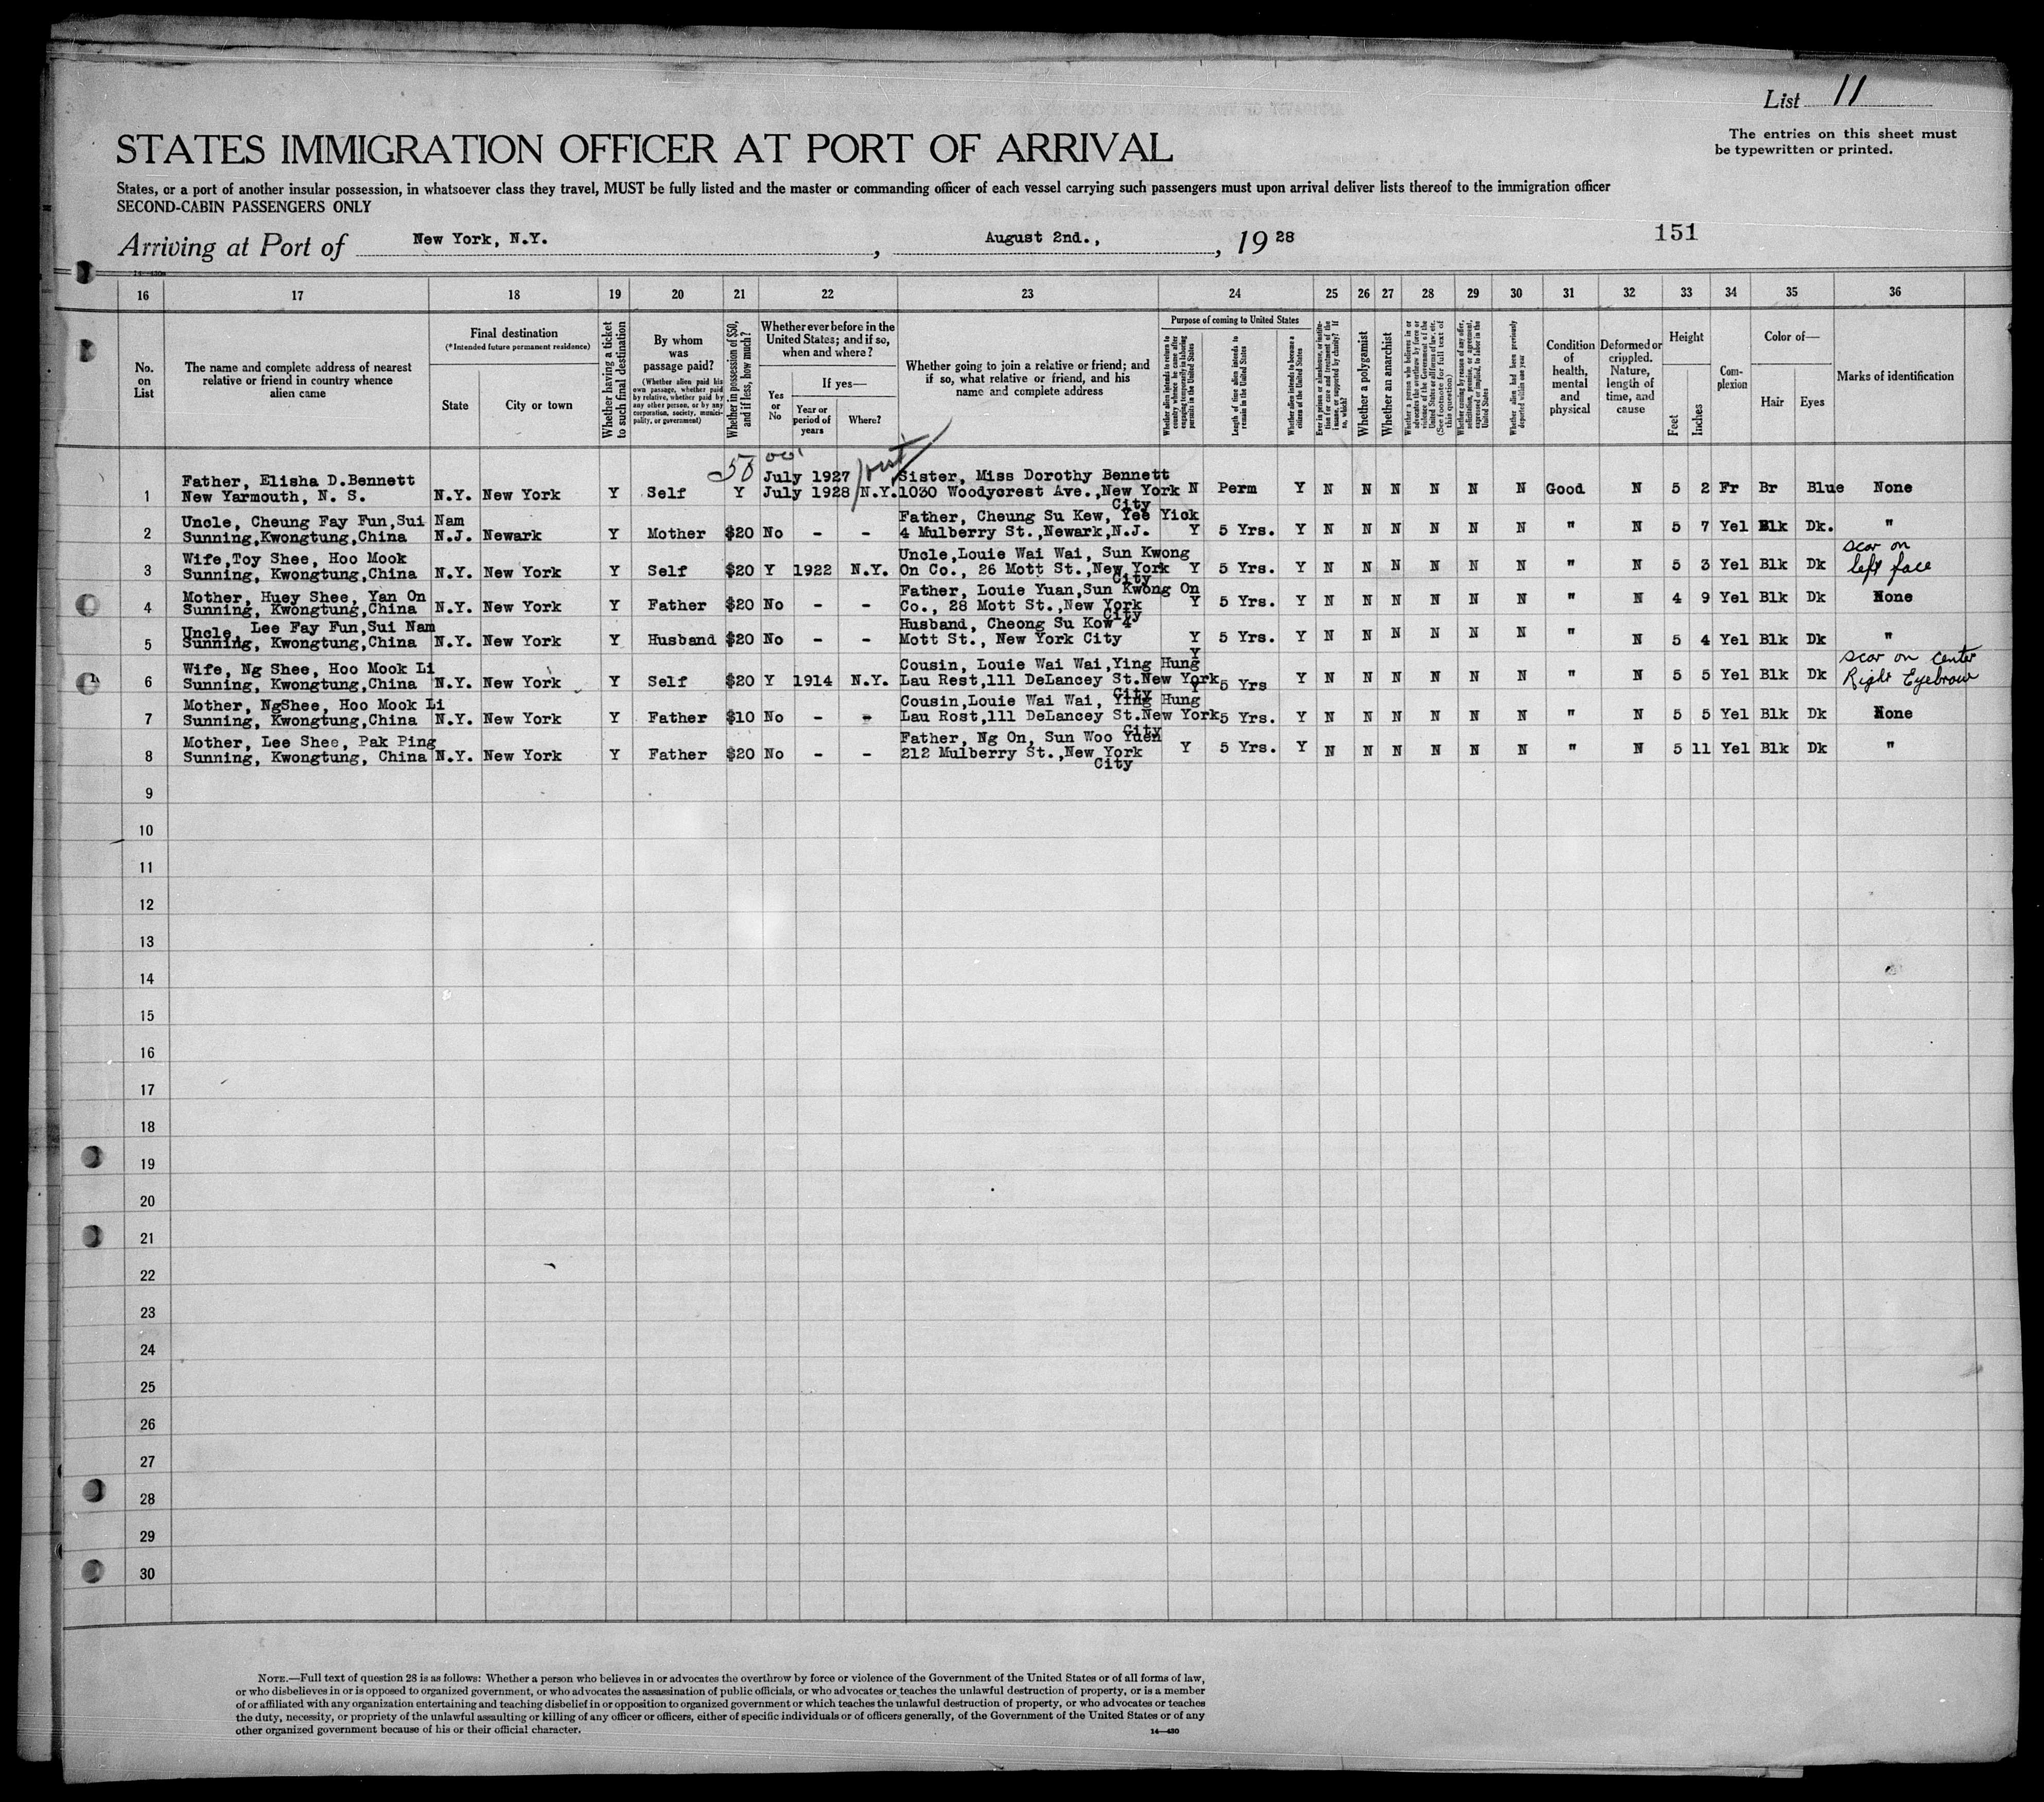 List 11
The entries on this sheet must
be typewritten or printed.
STATES IMMIGRATION OFFICER AT PORT OF ARRIVAL
States, or a port of another insular possession, in whatsoever class they travel, MUST be fully listed and the master or commanding officer of each vessel carrying such passengers must upon arrival deliver lists thereof to the immigration officer
SECOND-CABIN PASSENGERS ONLY
151
Arriving at Port of New York, N.Y. , August 2nd., , 19 28
14—430a
16 17 18 19 20 21 22 23 24 25 26 27 28 29 30 31 32 33 34 35 36
No. on List
The name and complete address of nearest relative or friend in country whence alien came
Final destination
(*Intended future permanent residence)
State
City or town
Whether having a ticket to such final destination
By whom was passage paid?
(Whether alien paid his own passage, whether paid by relative, whether paid by any other person, or by any corporation, society, municipality, or government)
Whether in possession of $50, and if less, how much?
Whether ever before in the United States; and if so, when and where?
Yes or No
If yes—
Year or period of years
Where?
Whether going to join a relative or friend; and if so, what relative or friend, and his name and complete address
Purpose of coming to United States
Whether alien intends to return to country whence he came after engaging temporarily in laboring pursuits in the United States
Length of time alien intends to remain in the United States
Whether alien intends to become a citizen of the United States
Ever in prison or almshouse, or institution for care and treatment of the insane, or supported by charity? If so, which?
Whether a polygamist
Whether an anarchist
Whether a person who believes in or advocates the overthrow by force or violence of the Government of the United States or all forms of law, etc. (See footnote for full text of this question)
Whether coming by reason of any offer, solicitation, promise, or agreement, expressed or implied, to labor in the United States
Whether alien had been previously deported within one year
Condition of health, mental and physical
Deformed or crippled. Nature, length of time, and cause
Height
Feet
Inches
Complexion
Color of—
Hair
Eyes
Marks of identification
50 00
1 Father, Elisha D.Bennett July 1927 Sister, Miss Dorothy Bennett
New Yarmouth, N. S. N.Y. New York Y Self Y July 1928 N.Y. 1030 Woodycrest Ave.,New York N Perm Y N N N N N N Good N 5 2 Fr Br Blue None
City
2 Uncle, Cheung Fay Fun,Sui Nam Father, Cheung Su Kew, Yee Yick
Sunning,Kwongtung,China N.J. Newark Y Mother $20 No - - 4 Mulberry St.,Newark,N.J. Y 5 Yrs. Y N N N N N N " N 5 7 Yel Blk Dk. "
3 Wife,Toy Shee, Hoo Mook Uncle,Louie Wai Wai, Sun Kwong scar on
Sunning, Kwongtung,China N.Y. New York Y Self $20 Y 1922 N.Y. On Co., 26 Mott St.,New York Y 5 Yrs. Y N N N N N N " N 5 3 Yel Blk Dk left face
City
4 Mother, Huey Shee, Yan On Father, Louie Yuan,Sun Kwong On
Sunning, Kwongtung,China N.Y. New York Y Father $20 No - - Co., 28 Mott St.,New York Y 5 Yrs. Y N N N N N N " N 4 9 Yel Blk Dk None
City
5 Uncle, Lee Fay Fun,Sui Nam Husband, Cheong Su Kow 4
Sunning, Kwongtung,China N.Y. New York Y Husband $20 No - - Mott St., New York City Y 5 Yrs. Y N N N N N N " N 5 4 Yel Blk Dk "
Y
6 Wife, Ng Shee, Hoo Mook Li Cousin, Louie Wai Wai,Ying Hung scar on center
Sunning, Kwongtung,China N.Y. New York Y Self $20 Y 1914 N.Y. Lau Rest,111 DeLancey St.New York Y 5 Yrs Y N N N N N N " N 5 5 Yel Blk Dk Right Eyebrow
City
7 Mother, NgShee, Hoo Mook Li Cousin,Louie Wai Wai, Ying Hung
Sunning, Kwongtung,China N.Y. New York Y Father $10 No - - Lau Rost,111 DeLancey St.New York 5 Yrs. Y N N N N N N " N 5 5 Yel Blk Dk None
City
8 Mother, Lee Shee, Pak Ping Father, Ng On, Sun Woo Yuen
Sunning, Kwongtung, China N.Y. New York Y Father $20 No - - 212 Mulberry St.,New York Y 5 Yrs. Y N N N N N N " N 5 11 Yel Blk Dk "
City
9
10
11
12
13
14
15
16
17
18
19
20
21
22
23
24
25
26
27
28
29
30
NOTE.—Full text of question 28 is as follows: Whether a person who believes in or advocates the overthrow by force or violence of the Government of the United States or of all forms of law,
or who disbelieves in or is opposed to organized government, or who advocates the assassination of public officials, or who advocates or teaches the unlawful destruction of property, or is a member
of or affiliated with any organization entertaining and teaching disbelief in or opposition to organized government or which teaches the unlawful destruction of property, or who advocates or teaches
the duty, necessity, or propriety of the unlawful assaulting or killing of any officer or officers, either of specific individuals or of officers generally, of the Government of the United States or of any
other organized government because of his or their official character.
14—430